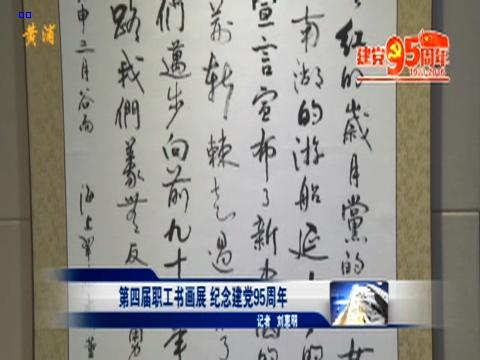 黄浦
建党95周年
1921-2016
紅的歲月黨的
南湖的游船延
宣言宣布了新
斬棘
們邁步向前九十
路我們義無反
申三月谷雨 海上
第四届职工书画展 纪念建党95周年
记者 刘惠明